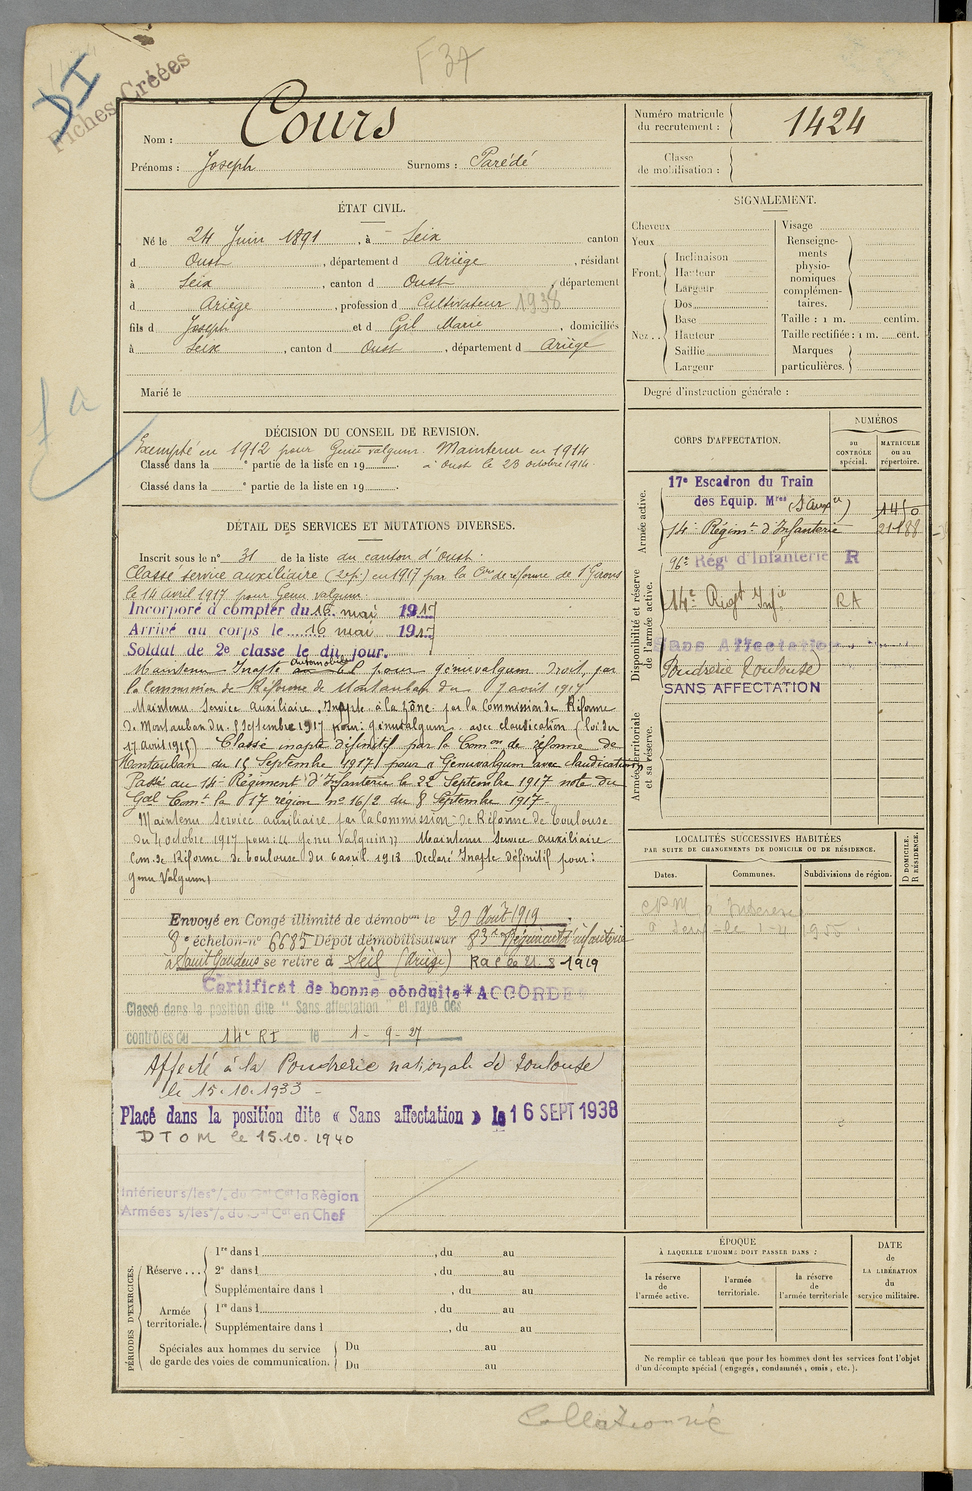 F 37
DI
Fiches Créées
Nom : Cours
Prénoms : Joseph Surnoms : Parédé
Numéro matricule du recrutement : 1424
Classe de mobilisation :
ÉTAT CIVIL.
Né le 24 Juin 1891, à Seix canton
d Oust, département d Ariège, résidant
à Seix, canton d Oust, département
d Ariège, profession d Cultivateur 1938
fils d Joseph et d Gil Marie, domiciliés
à Seix, canton d Oust, département d Ariège
Marié le
SIGNALEMENT.
Cheveux
Yeux
Front. Inclinaison
Hauteur
Largeur
Nez . . Dos
Base
Hauteur
Saillie
Largeur
Visage
Renseigne-
ments
physio-
nomiques
complémen-
taires.
Taille : 1 m. centim.
Taille rectifiée : 1 m. cent.
Marques
particulières.
Degré d'instruction générale :
1a
DÉCISION DU CONSEIL DE REVISION.
Exempté en 1912 pour Genu valgum. Maintenu en 1914
Classé dans la e partie de la liste en 19 . à Oust le 23 octobre 1914.
Classé dans la e partie de la liste en 19 .
DÉTAIL DES SERVICES ET MUTATIONS DIVERSES.
Inscrit sous le n° 31 de la liste du canton d'Oust.
Classé service auxiliaire (2e p.) en 1917 par la Con de réforme de St Girons
le 14 avril 1917 pour Genu valgum.
Incorporé à compter du 16 mai 1917
Arrivé au corps le 16 mai 1917
Soldat de 2e classe le dit jour.
Maintenu Inapte automobiles pour génuvalgum droit, par
la Commission de Réforme de Montauban du 7 août 1917
Maintenu Service Auxiliaire. Inapte à la Zône par la Commission de Réforme
de Montauban du 8 Septembre 1917 pour : génuvalgum avec claudication (loi du
17 avril 1915) Classé inapte définitif par la Comon de réforme de
Montauban du 15 Septembre 1917 pour "Génuvalgum avec claudication"
Passé au 14e Régiment d'Infanterie le 22 Septembre 1917 note du
Gal Comt la 17 région no 16/2 du 8 Septembre 1917.
Maintenu service auxiliaire par la Commission de Réforme de Toulouse
du 4 octobre 1917 pour : "Genu Valguin" Maintenu Service auxiliaire
Com. de Réforme de Toulouse du 6 avril 1918 Déclaré Inapte définitif pour :
Genu Valgum)
Envoyé en Congé illimité de démobon le 20 Août 1919
8e échelon - n° 6685 Dépôt démobilisateur 83e Régiment d'infanterie
à Saint Gaudens se retire à Seix (Ariège) 1919
Certificat de bonne conduite * ACCORDÉ
Classé dans la position dite " Sans affectation " et rayé des
contrôles du 14e RI le 1 - 9 - 27
Affecté à la Poudrerie nationale de Toulouse
le 15.10.1933
Placé dans la position dite « Sans affectation » le 16 SEPT 1938
DTOM le 15.10.1940
Intérieur s/les °/. du Gal Ct la Règion
Armées s/les °/. du Gal Ct en Chef
CORPS D'AFFECTATION.
NUMÉROS
au CONTRÔLE spécial.
MATRICULE ou au répertoire.
Armée active.
17e Escadron du Train
des Equip. Mres (S. auxre) 1450
14e Régimt d'Infanterie 21188
Disponibilité et réserve de l'armée active.
96e Régt d'Infanterie R
14e Rigt Infie RA
Sans Affectation
Poudrerie Toulouse
SANS AFFECTATION
Armée territoriale et sa réserve.
LOCALITÉS SUCCESSIVES HABITÉES
PAR SUITE DE CHANGEMENTS DE DOMICILE OU DE RÉSIDENCE.
D DOMICILE. R RÉSIDENCE.
Dates. Communes. Subdivisions de région.
PÉRIODES D'EXERCICES.
Réserve . . . 1re dans l , du au
2e dans l , du au
Supplémentaire dans l , du au
Armée territoriale. 1re dans l , du au
Supplémentaire dans l , du au
Spéciales aux hommes du service
de garde des voies de communication. Du au
Du au
ÉPOQUE
À LAQUELLE L'HOMME DOIT PASSER DANS :
la réserve de l'armée active.
l'armée territoriale.
la réserve de l'armée territoriale
DATE de LA LIBÉRATION du service militaire.
Ne remplir ce tableau que pour les hommes dont les services font l'objet
d'un décompte spécial (engagés, condamnés, omis, etc.).
Collationné